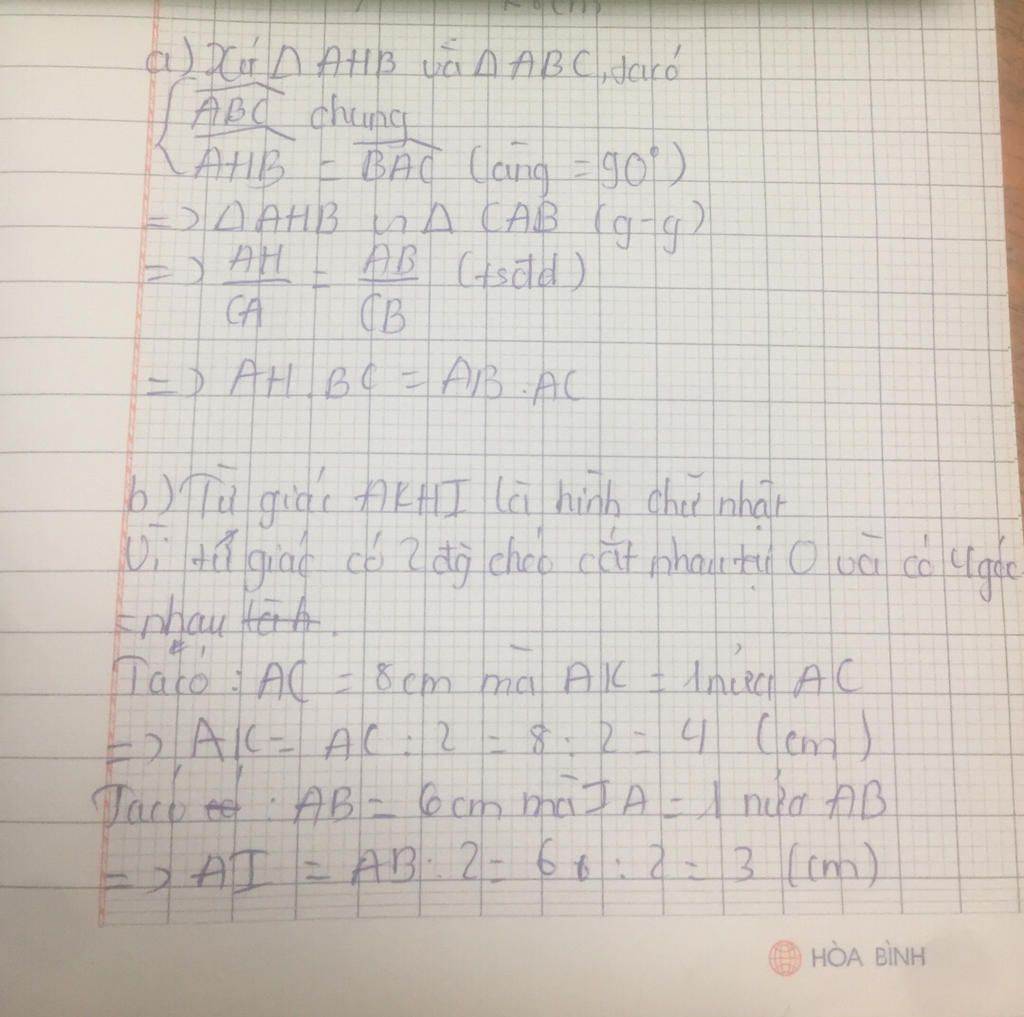 a) Xét Δ AHB và Δ ABC, ta có
ABC chung
AHB = BAC (cùng = 90°)
=> Δ AHB ∽ Δ CAB (g-g)
=> AH/CA = AB/CB (tsđd)
=> AH.BC = AB.AC
b) Tứ giác AKHI là hình chữ nhật
Vì tứ giác có 2 đg chéo cắt nhau tại O và có 4 góc
= nhau
Ta có : AC = 8cm mà AK = 1 nửa AC
=> AK = AC : 2 = 8 : 2 = 4 (cm)
Ta có : AB = 6cm mà IA = 1 nửa AB
=> AI = AB : 2 = 6 : 2 = 3 (cm)
HÒA BÌNH